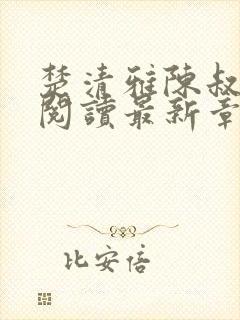 楚清雅陳叔
閱讀最新章
比安倍